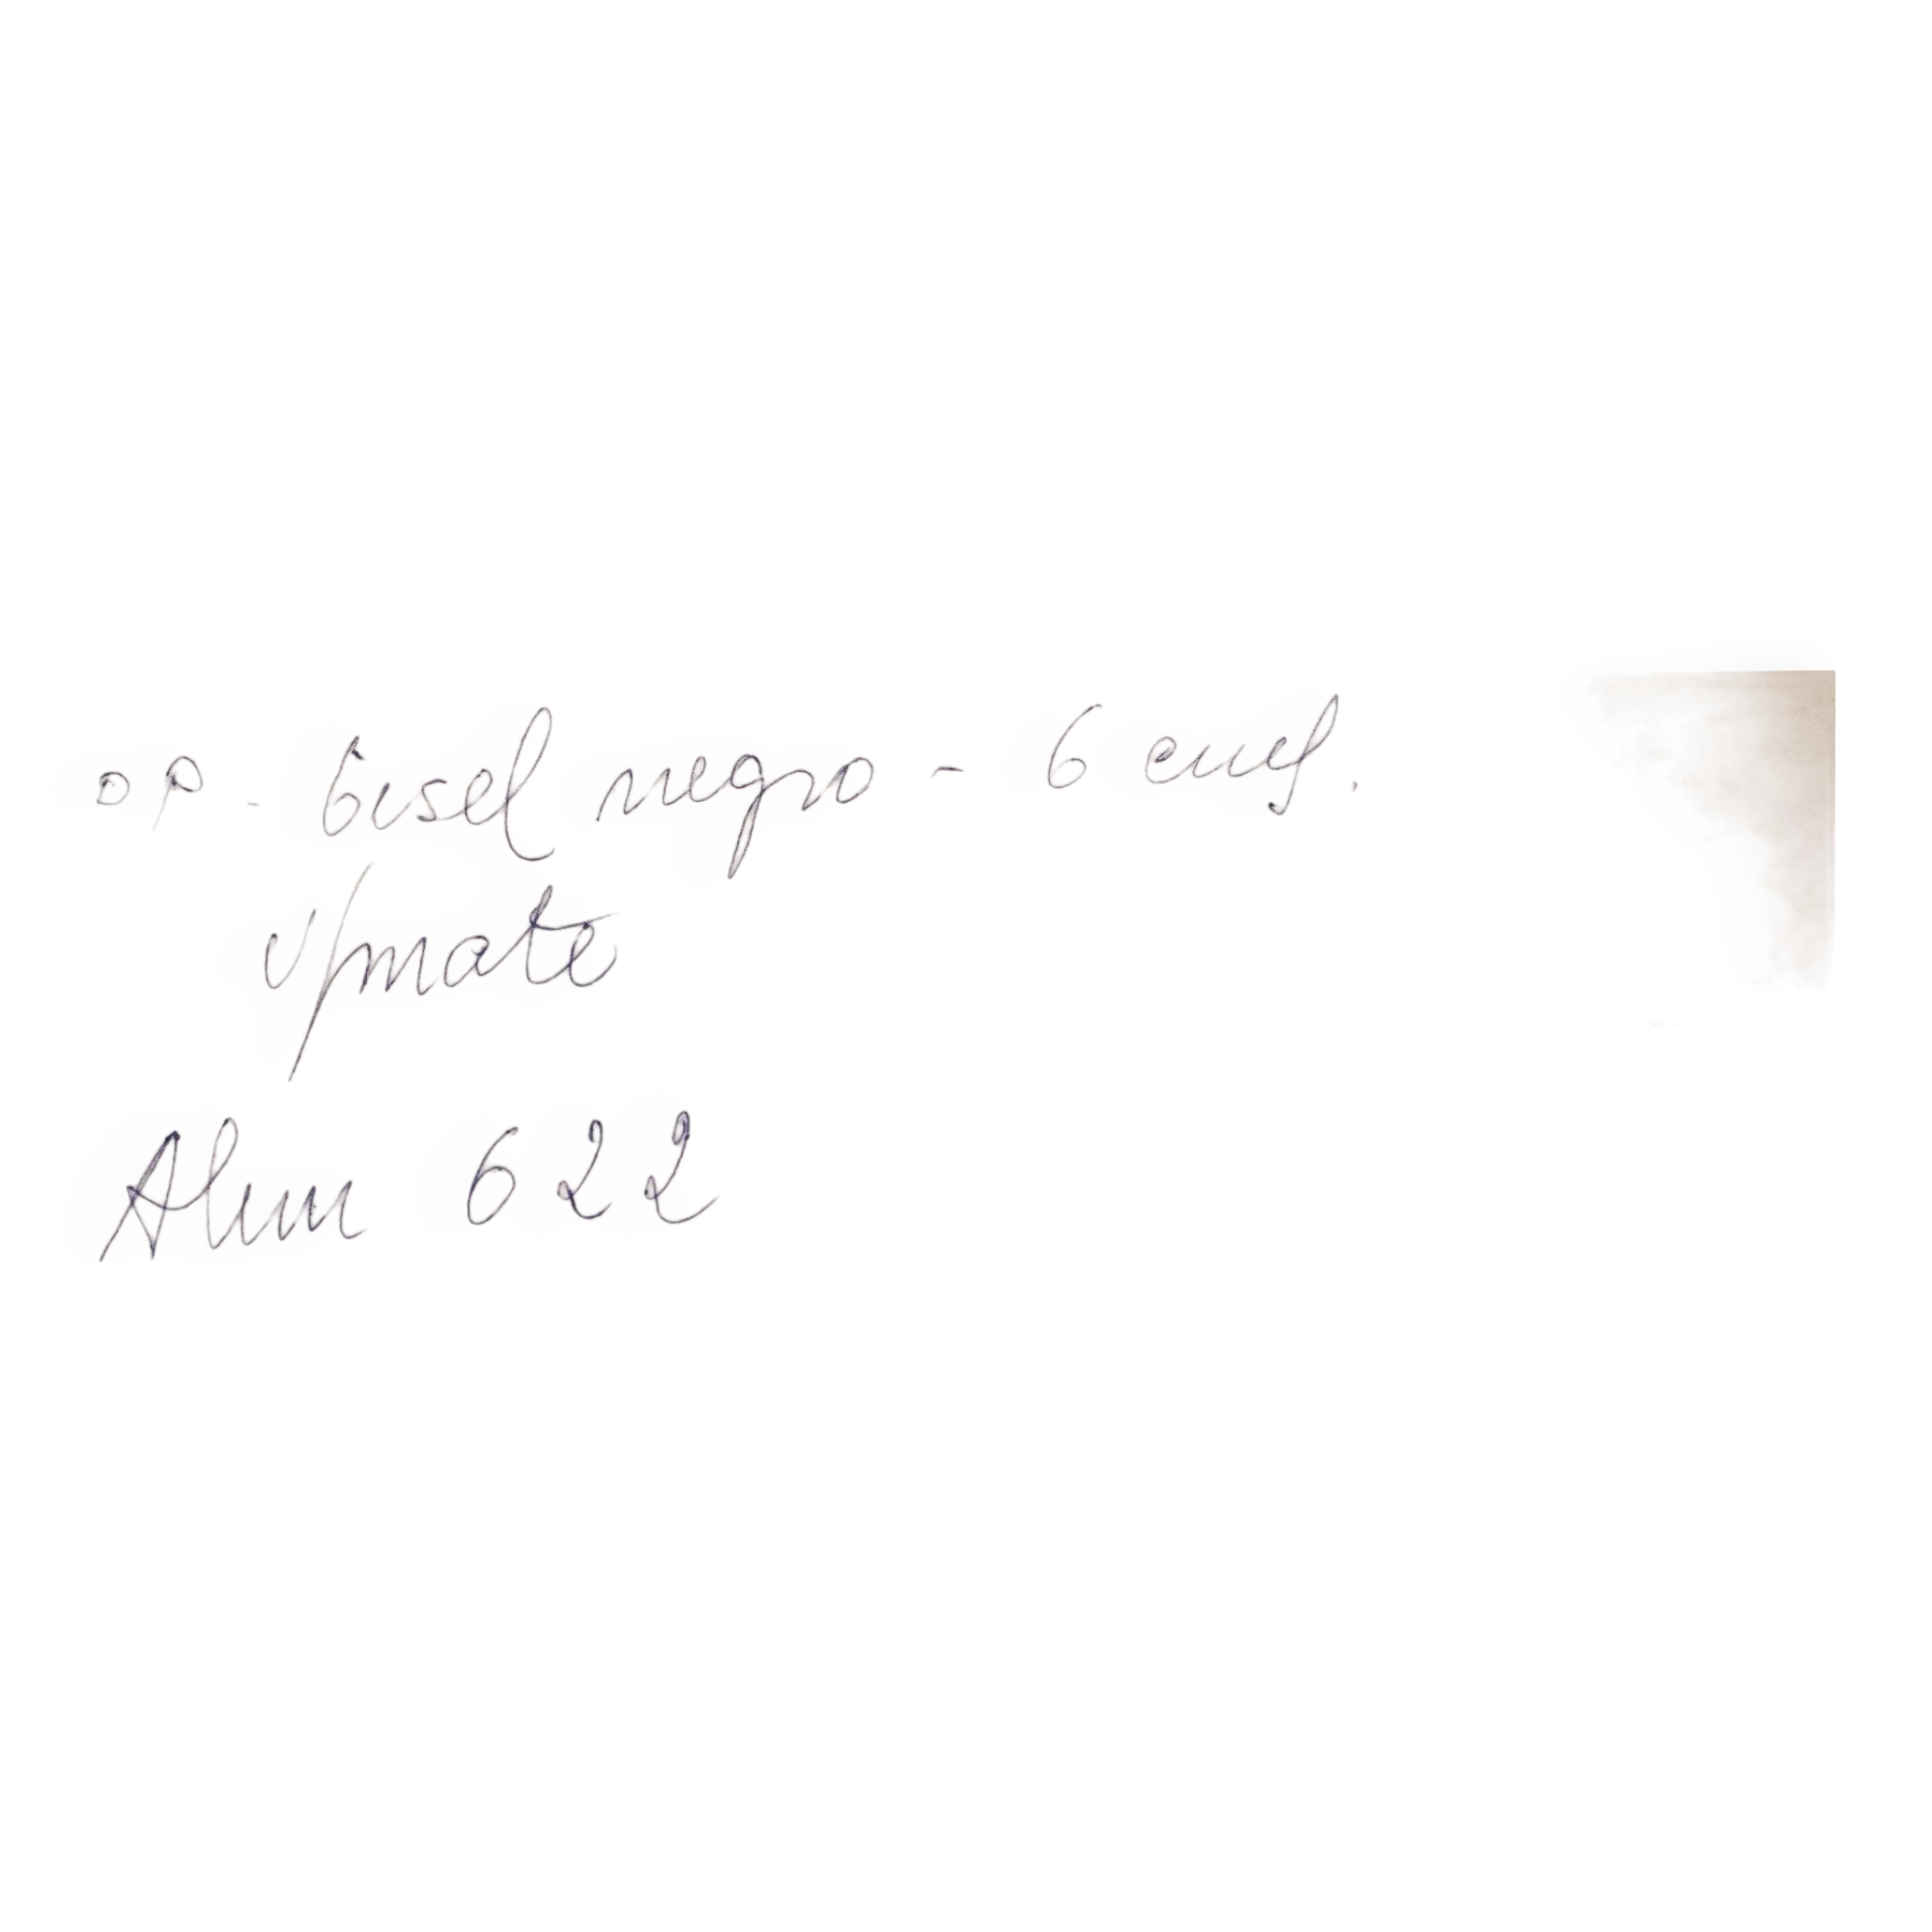 op - bisel negro - 6 cuef.
v/mate
Alum 622